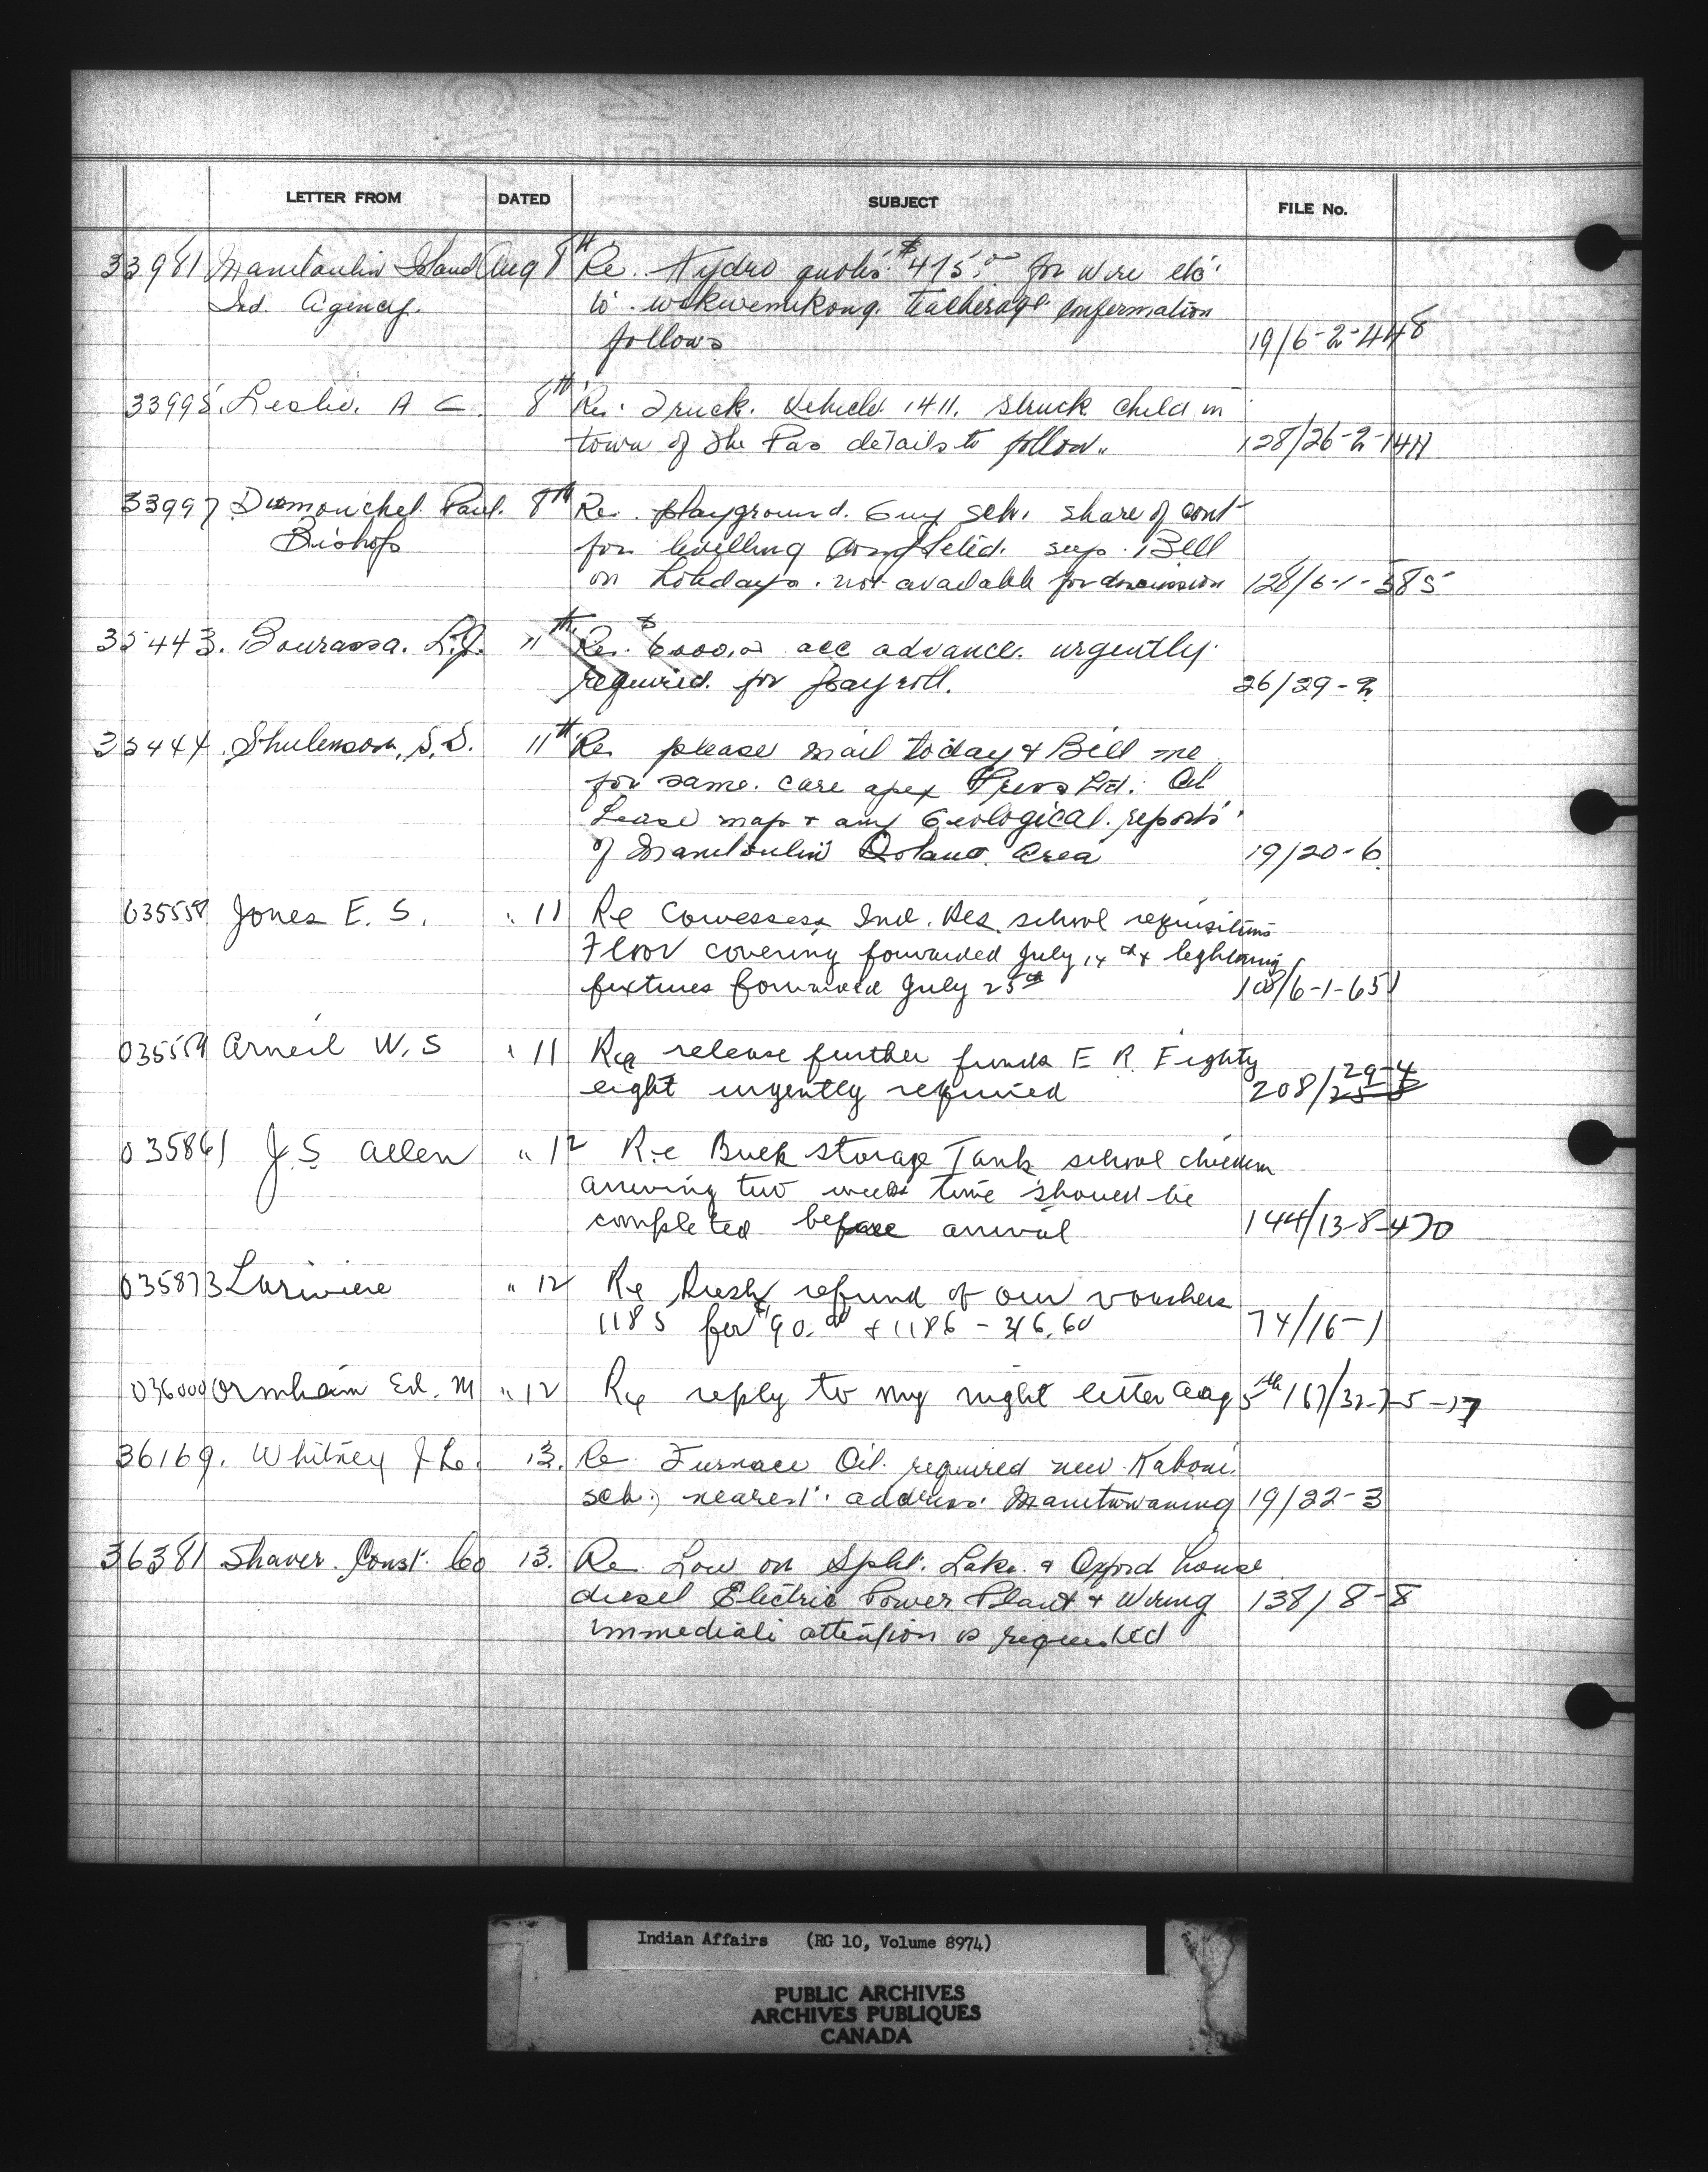 LETTER FROM DATED SUBJECT FILE No.
33981 Manitoulin Island Aug 8th Re. Hydro quotes $475.00 for wire etc
Ind. Agency. to wikwemikong. teacherage information
follows 19/6-2-448
33995. Leslie. A C. 8th Re. Truck. Vehicle 1411. struck child in
town of The Pas details to follow. 128/26-2-1411
33997 Dumouchel Paul. 8th Re. playground. Guy sch. share of cont
Bishop for levelling completed. sup. Bell
on holidays. not available for discussion 128/6-1-585
35443. Bourassa. L.J. 11th Re. $6000.00 acc advance. urgently
required. for payroll. 26/29-2
35444. Shulemson, S.S. 11th Re please mail today & Bill me
for same. care apex Press Ltd. Oil
Lease map & any Geological. reports
of Manitoulin Island. Area 19/20-6
035558 Jones E. S. " 11 Re Cowessess Ind. Res. school requisitions
Floor covering forwarded July 14th & lightning
fixtures forwarded July 25th 108/6-1-651
035559 Arneil W. S " 11 Re release further funds E R Eighty 29-4
eight urgently required 208/25-8
035861 J. S Allen " 12 Re Buck Storage Tank school children
arriving two weeks time should be
completed before arrival 144/13-8-470
035873 Lariviere " 12 Re Rush refund of our vouchers
1185 for $90.00 & 1186 - 316.60 74/16-1
036000 Ormheim Ed. M " 12 Re reply to my night letter Aug 5th 167/32-7-5-17
36169. Whitney J Le. 13. Re Furnace Oil. required new Kaboni.
sch; nearest. address. Manitowaning 19/22-3
36381 Shaver. Const. Co 13. Re. Low on Split. Lake. & Oxford house
diesel Electric Power Plant & Wiring 138/8-8
immediate attention is requested
Indian Affairs (RG 10, Volume 8974)
PUBLIC ARCHIVES
ARCHIVES PUBLIQUES
CANADA